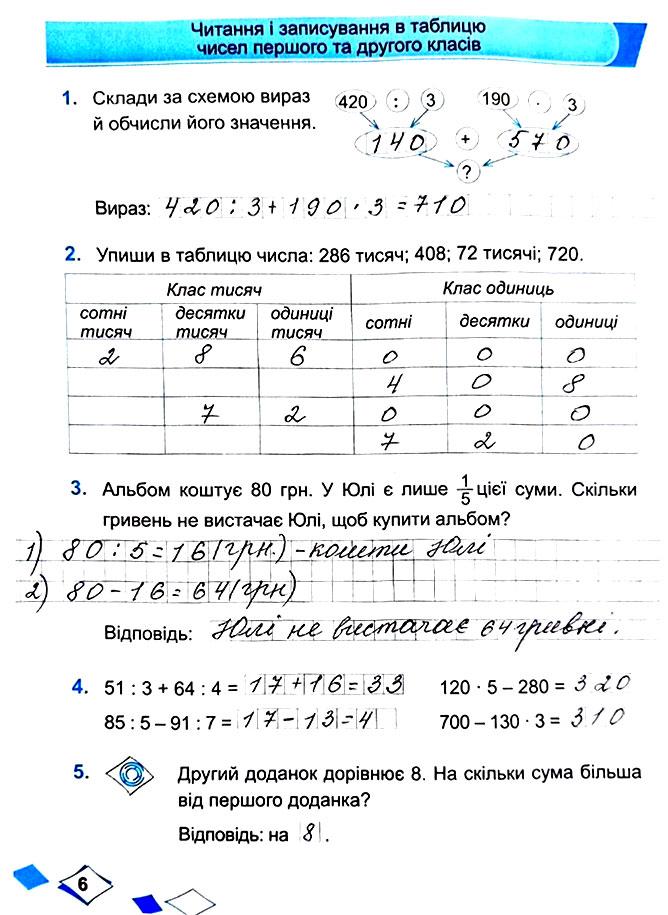 Читання і записування в таблицю
чисел першого та другого класів
1. Склади за схемою вираз
й обчисли його значення.
420 : 3 190 · 3
140 + 570
?
Вираз: 420 : 3 + 190 · 3 = 710
2. Упиши в таблицю числа: 286 тисяч; 408; 72 тисячі; 720.
Клас тисяч Клас одиниць
сотні тисяч десятки тисяч одиниці тисяч сотні десятки одиниці
2 8 6 0 0 0
4 0 8
7 2 0 0 0
7 2 0
3. Альбом коштує 80 грн. У Юлі є лише 1/5 цієї суми. Скільки
гривень не вистачає Юлі, щоб купити альбом?
1) 80 : 5 = 16 (грн.) – кошти Юлі
2) 80 – 16 = 64 (грн)
Відповідь: Юлі не вистачає 64 гривні.
4. 51 : 3 + 64 : 4 = 17 + 16 = 33 120 · 5 – 280 = 320
85 : 5 – 91 : 7 = 17 – 13 = 4 700 – 130 · 3 = 310
5. Другий доданок дорівнює 8. На скільки сума більша
від першого доданка?
Відповідь: на 8.
6